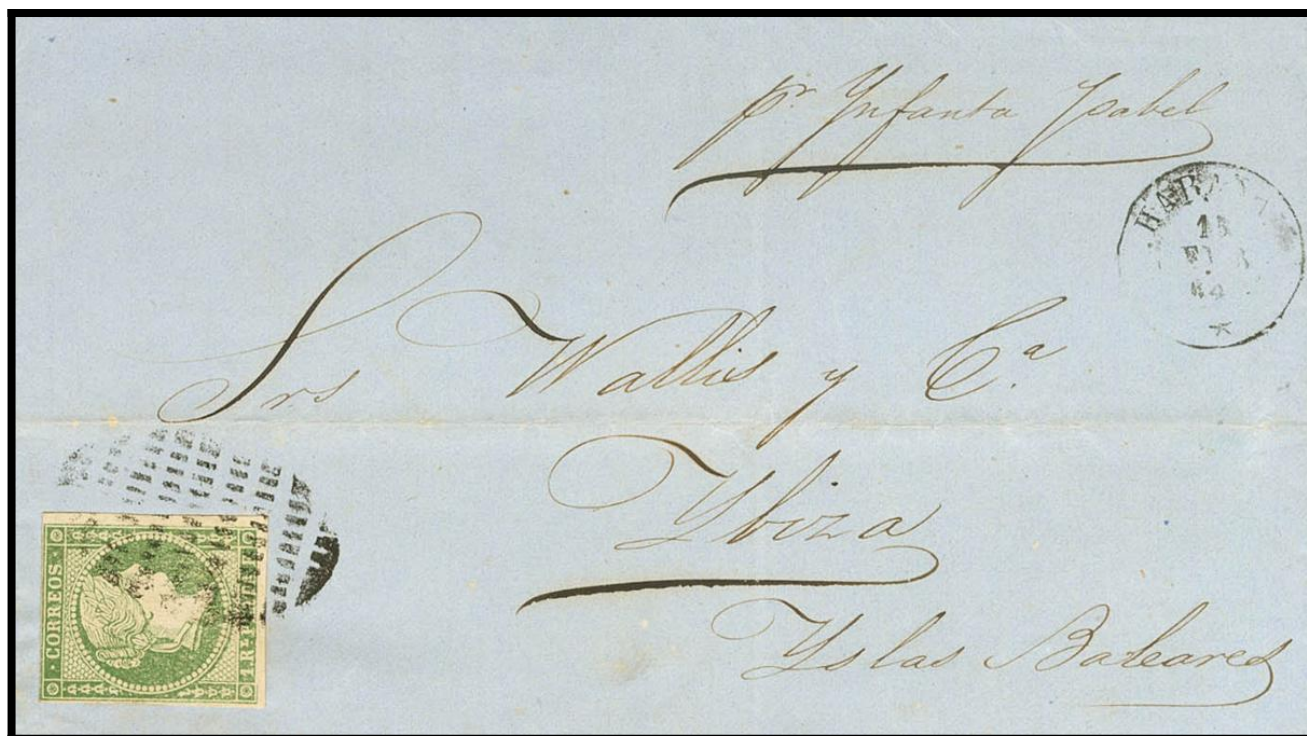 pr. Ynfanta Ysabel
15
64
Srs Wallis y Cª
Ybiza
Yslas Baleares
CORREOS